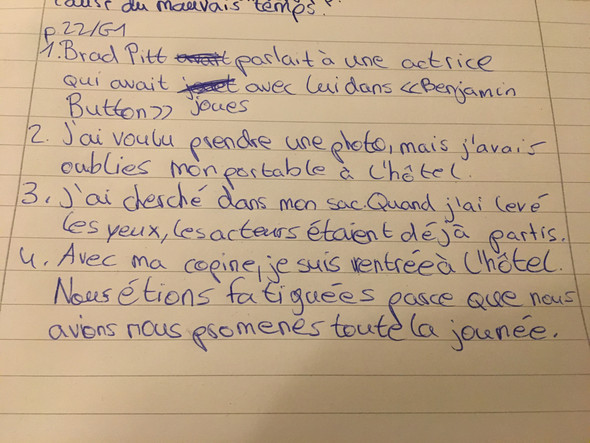 cause du mauvais temps.
p.22/G1
1. Brad Pitt parlait à une actrice
qui avait avec lui dans «Benjamin
Button» joues
2. J'ai voulu prendre une photo, mais j'avais
oublies mon portable à l'hôtel.
3. J'ai cherché dans mon sac. Quand j'ai levé
les yeux, les acteurs étaient déjà partis.
4. Avec ma copine, je suis rentrée à l'hôtel.
Nous étions fatiguées parce que nous
avions nous promenes toute la journée.